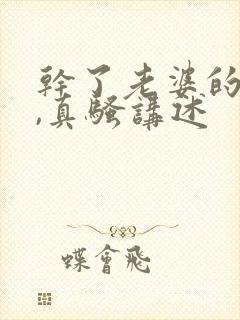 幹了老婆的
,真騷講述
蝶會飛